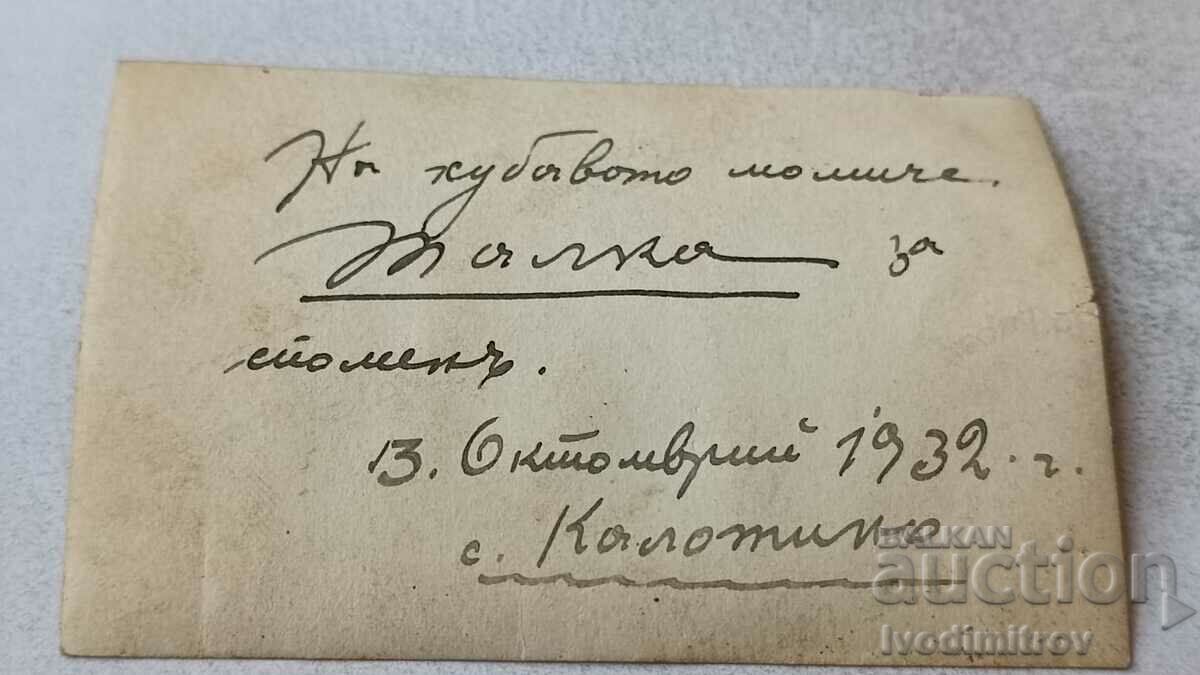 На хубавото момиче.
Талка за
споменъ.
13. Октомврий 1932. г.
с. Калотина
BALKAN
auction
Ivodimitrov